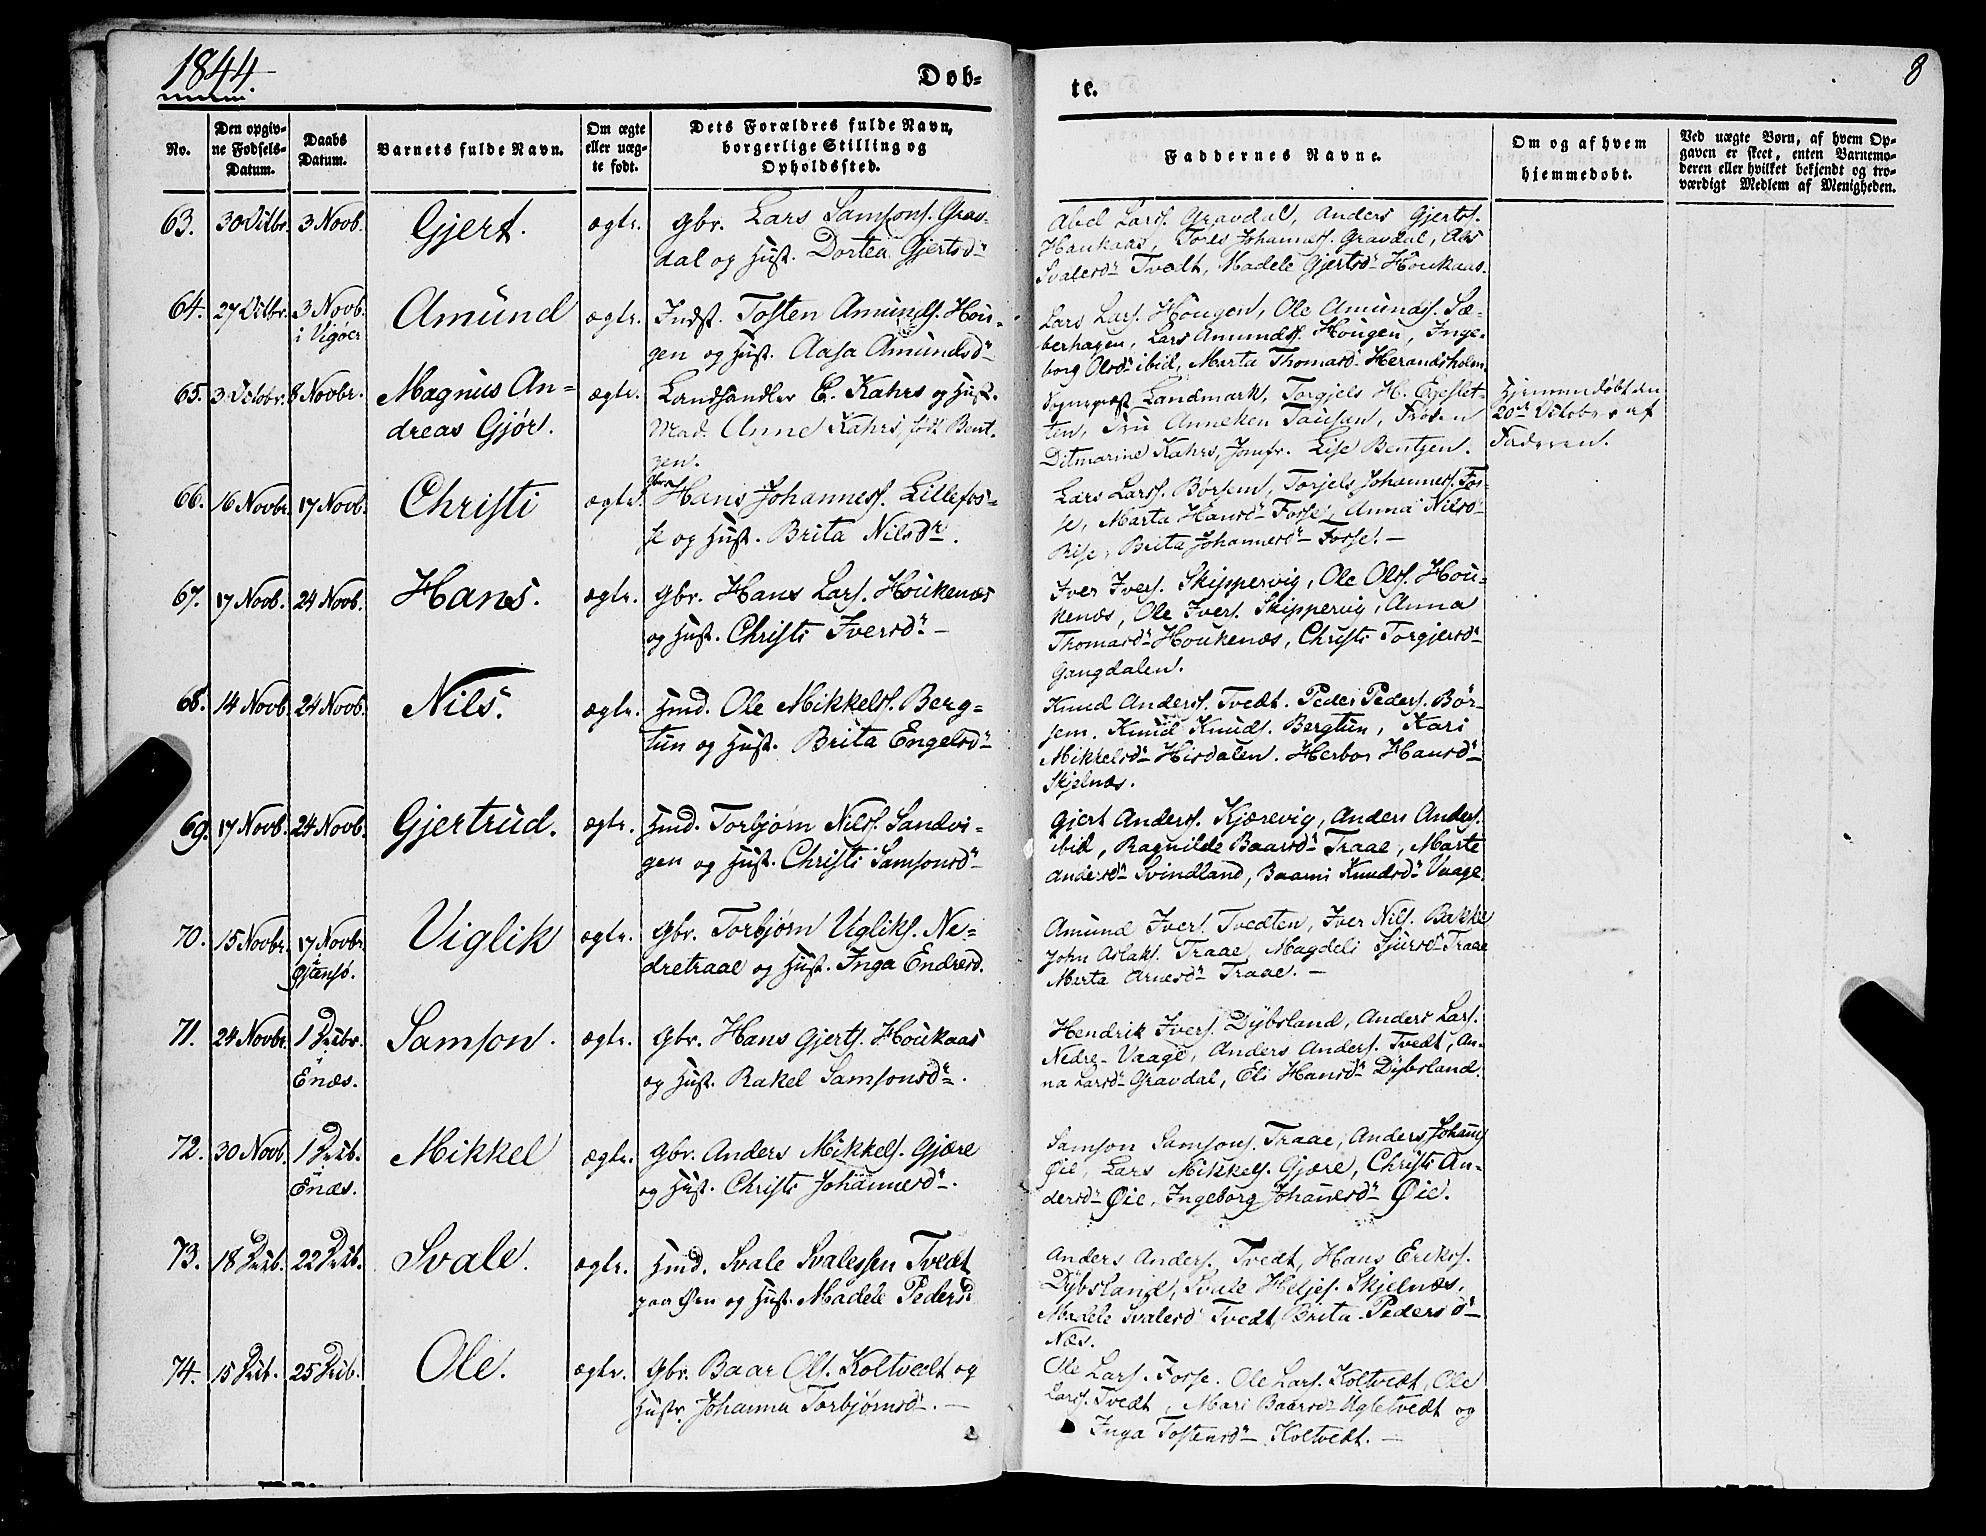 1844
Døb=
te.
8
No.
Den opgiv=
ne Fødsels=
Datum.
Daabs
Datum.
Barnets fulde Navn.
Om ægte
eller uæg=
te født.
Dets Forældres fulde Navn,
borgerlige Stilling og
Opholdssted.
Faddernes Navne.
Om og af hvem
hjemmedøbt.
Ved uægte Børn, af hvem Op=
gaven er skeet, enten Barnemo=
deren eller hvilket bekjendt og tro=
værdigt Medlem af Menigheden.
63. 30 Octbr. 3 Novb. Gjert. ægte. gbr. Lars Samsons. Grav=
dal og Hust. Dortea Gjertsdr
Abel Lars. Gravdal, Anders Gjerts.
Haukaas, Johannes. Gravdal,
Svalesdr Tvedt, Madele Gjertsdr Houkaas.
64. 27 Octbr. 3 Novb.
i Vigøer Amund ægte. Indst. Tosten Amunds. Hou=
gen og Hust. Aasa Amundsdr
Lars Lars. Hougen, Ole Amunds. Sæ=
berhagen, Lars Amunds. Hougen, Inge=
borg Olsdr ibid, Marta Thomasdr Herandsholm
65. 3 Octobr. 8 Novbr. Magnus An=
dreas Gjør. ægte. Landhandler E. Kahrs og Hust.
Mad. Anne Kahrs, født Bent=
zen.
Sognepræst Landmark, Torgjels H.
ten, Fru Anneken Tausan, Frøken
Ditmarine Kahrs, Jomfr. Lise Bentzen.
Hjemmedøbt den
20de Octobr af
Faderen.
66. 16 Novbr. 17 Novb. Christi ægte. Gbr. Hans Johanness. Lillefos=
se og Hust. Brita Nilsdr.
Lars Larss. Børsem, Torjels Johanness. Fos=
se, Marta Hansdr Fosse, Anna Nilsdr
Rise, Brita Johannesdr Fosse. —
67. 17 Novb. 24 Novb. Hans. ægte. gbr. Hans Lars. Houkenæs
og Hust. Christi Iversdr. —
Iver Ivers. Skippervig, Ole Ols. Hou=
kenæs, Ole Ivers. Skippervig, Anna
Thomasdr Houkenæs, Christi Torgjersdr
Gangdalen.
68. 14 Novb. 24 Novb. Nils. ægte. Hmd. Ole Mikkels. Berg=
tun og Hust. Brita Engelsdr
Knud Anders. Tvedt. Peder Peders. Bør=
sem. Knud Knuds. Bergtun, Kari
Mikkelsdr Hisdalen. Herbor Hansdr
Skjelnæs.
69. 17 Novb. 24 Novb. Gjertrud. ægte. Hmd. Torbjørn Nils. Sandvi=
gen og Hust. Christi Samsonsdr
Gjert Anders. Kjærevig, Anders Anders.
ibid, Ragnilde Baarsdr Traae, Marte
Andersdr Svindland, Baarni Knudsdr Vaage.
70. 15 Novbr. 17 Novbr.
i Gjænsø. Viglik ægte. Gbr. Torbjørn Vigliks. Ne=
dretraae og Hust. Inga Endresd.
Amund Ivers. Tvedten, Iver Nils. Bakke
John Aslaks. Traae, Magdeli Sjursdr Traae
Marta Arnesdr Traae. —
71. 24 Novbr. 1 Decbr.
i
Enæs. Samson. ægte. Gbr. Hans Gjerts. Houkaas
og Hust. Rakel Samsonsdr.
Hendrik Ivers. Dybsland, Anders Lars.
Nedre-Vaage, Anders Anders. Tvedt, An=
na Larsdr Gravdal, Eli Hansdr Dybsland.
72. 30 Novb. 1 Decb.
i
Enæs. Mikkel ægte. Gbr. Anders Mikkels. Gjære
og Hust. Christi Johannesdr.
Samson Samsons. Traae, Anders Johans
Øie, Lars Mikkels. Gjære, Christi An=
dersdr Øie, Ingeborg Johanesdr Øie.
73. 18 Decb. 22 Decb. Svale. ægte. Hmd. Svale Svalessen Tvedt
paa Øen og Hust. Madele Pedersd
Anders Anders. Tvedt, Hans Eriks.
Dybsland, Svale Heljes. Skjelnæs,
Madele Svalesd Tvedt, Brita Pedersdr
Næs.
74. 15 Decb. 25 Decb. Ole. ægte. Gbr. Baar Ols. Koltvedt og
Hustr. Johanna Torbjørnsdr. —
Ole Lars. Fosse. Ole Lars. Koltvedt, Ole
Lars. Tvedt, Mari Baarsdr Ugletvedt og
Inga Tostensdr Koltvedt. —